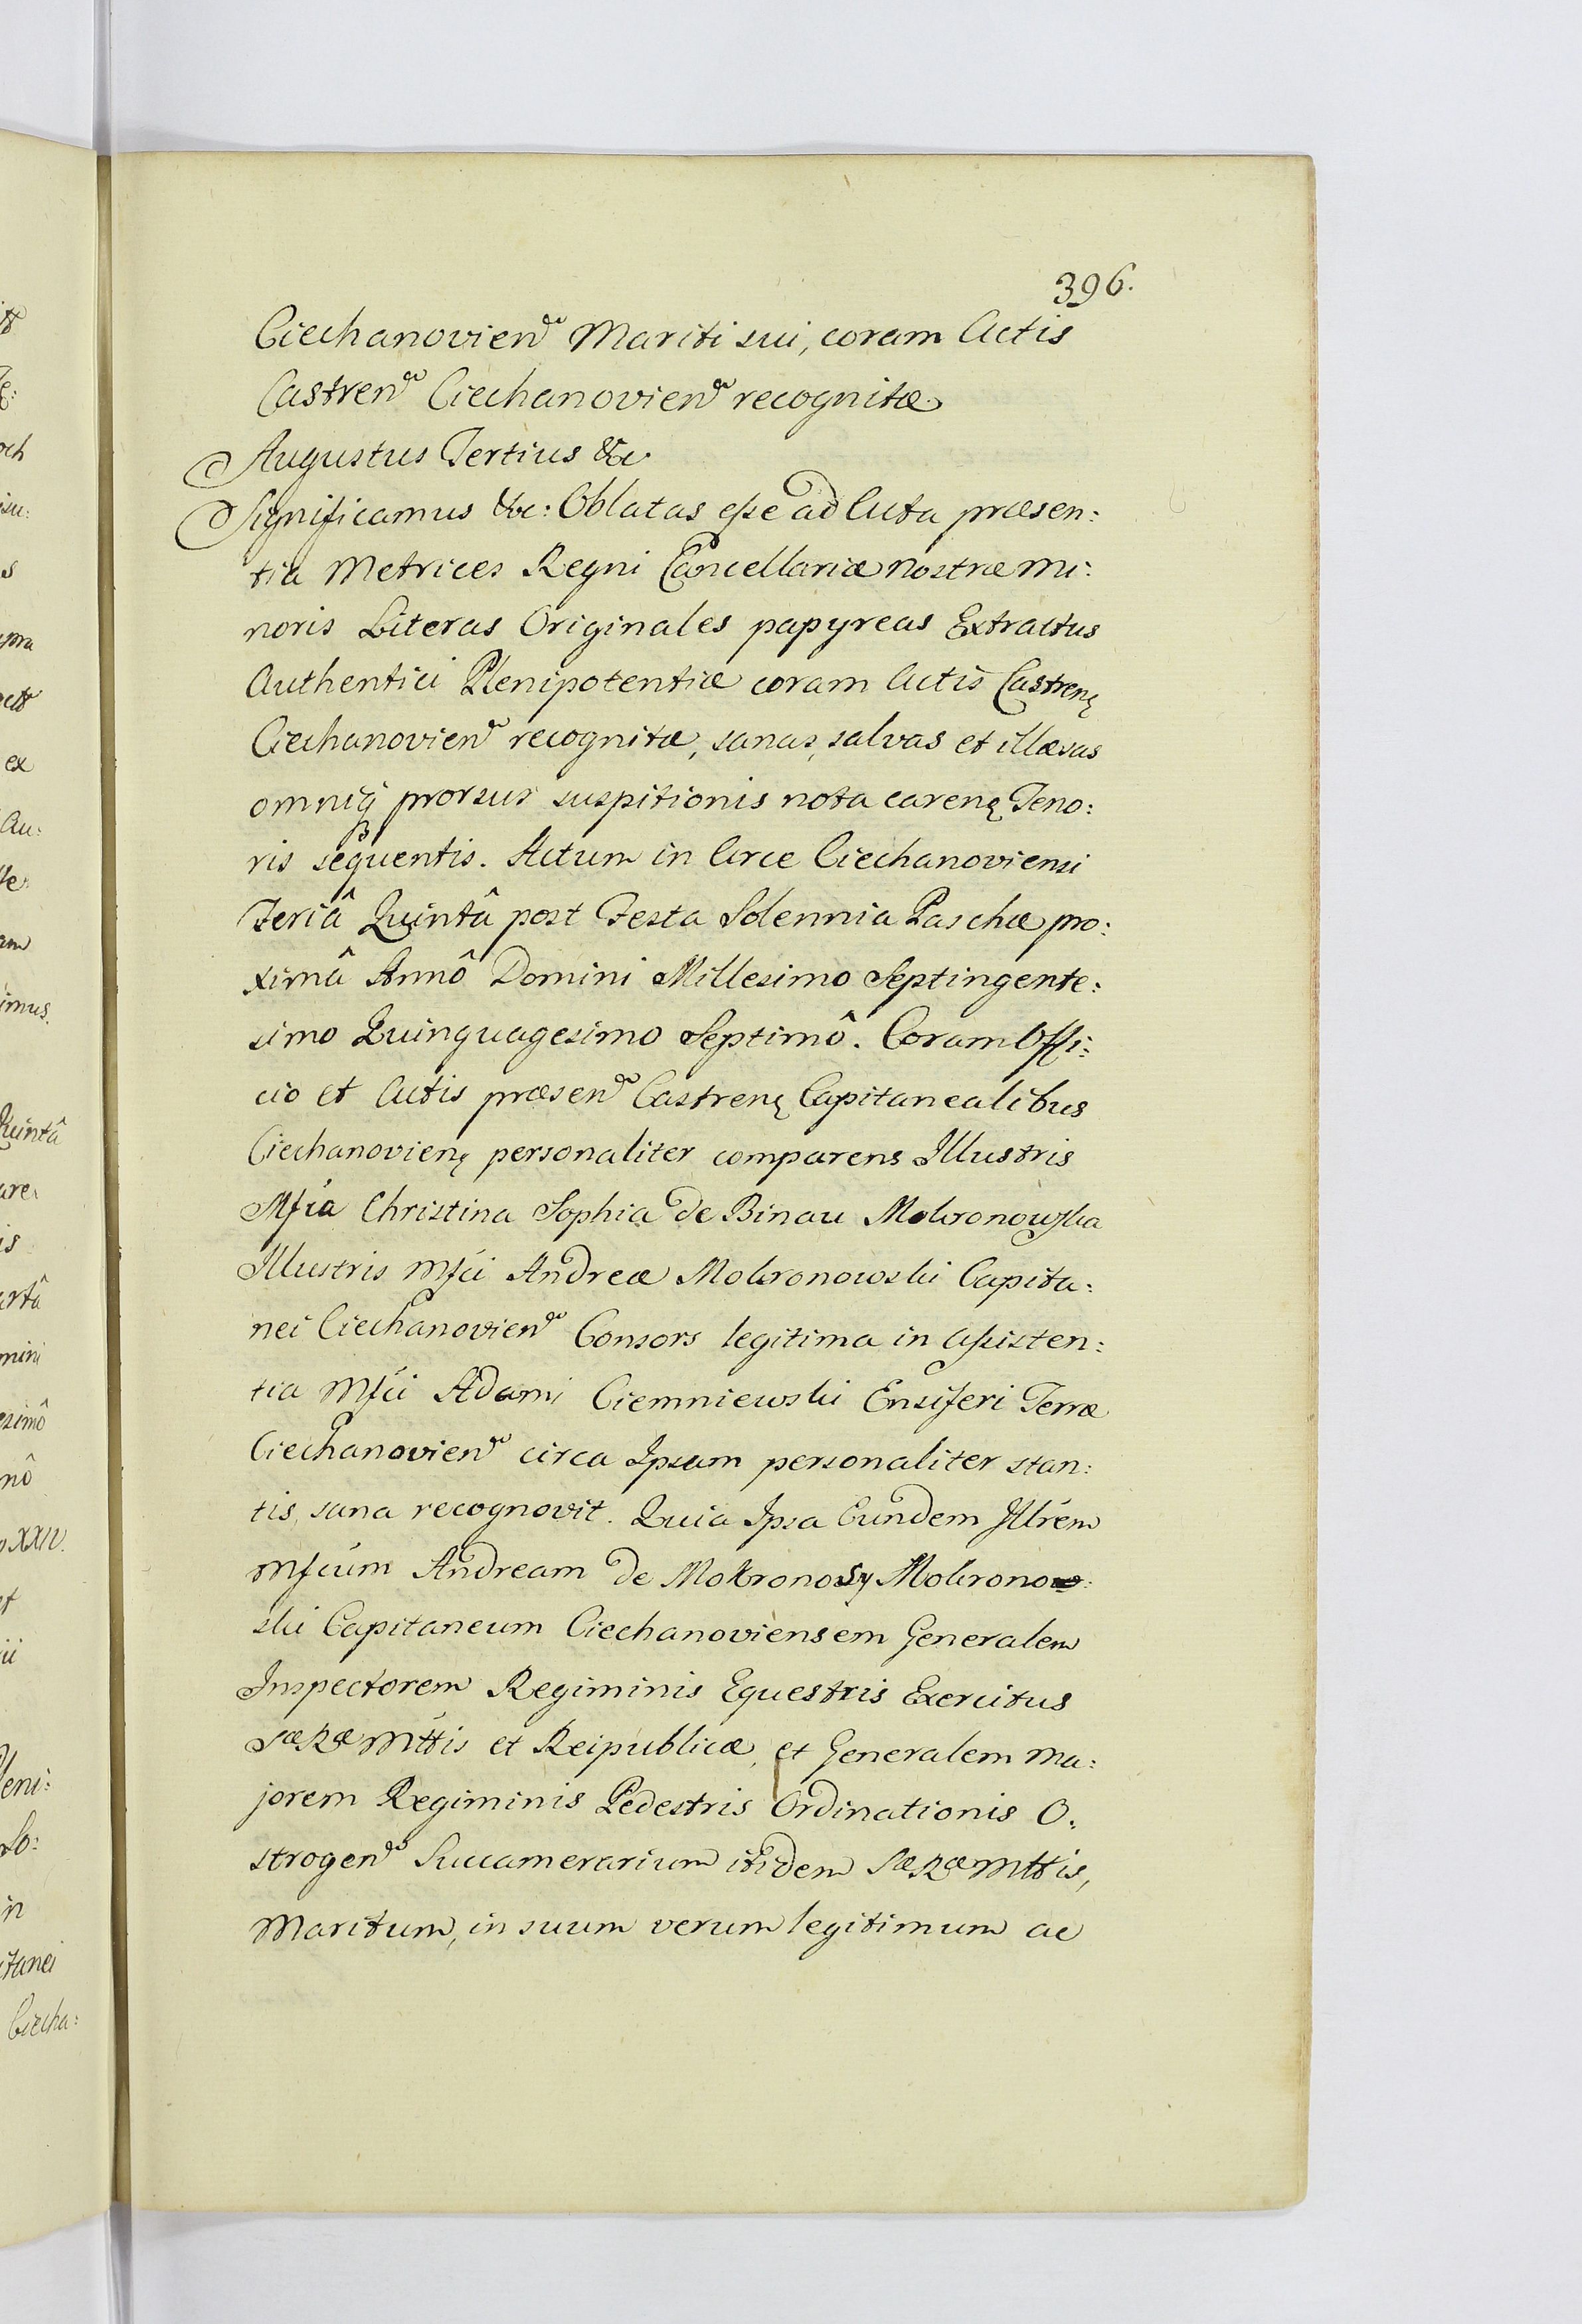 396.
Ciechanovien. Mariti sui, coram Actis
Castren. Ciechanovien. recognitæ
Augustus Tertius &c
Significamus &c: Oblatas esse ad Acta præsen:
tia Metrices Regni Cancellariæ nostræ Mi:
noris Literas Originales papyreas Extractus
Authentici Plenipotentiæ coram Actis Castrenę
Ciechanovien. recognitæ, sanas, salvas et illæsas
omniq́ prorsus suspitionis nota carenę Teno:
ris sequentis. Actum in Arce Ciechanoviensi
Feriâ Quintâ post Festa Solennia Paschæ pro:
ximâ Annô Domini Millesimo Septingente:
simo Quinquagesimo Septimô. Coram Offi:
cio et Actis præsen. Castrenę Capitanealibus
Ciechanovienę personaliter comparens Illustris
Mfca Christina Sophia de Binau Mokronowska
Illustris Mfci Andreæ Mokronowski Capita:
nei Ciechanovien. Consors legitima in Assisten:
tia Mfci Adami Ciemniewski Ensiferi Terræ
Ciechanovien. circa Ipsam personaliter stan:
tis, sana recognovit. Quia Ipsa Eundem Illrem
Mfcum Andream de Mokronosy Mokronow:
ski Capitaneum Ciechanoviensem Generalem
Inspectorem Regiminis Equestris Exercitus
Sæ Ræ Mttis et Reipublicæ, et Generalem Ma:
jorem Regiminis Pedestris Ordinationis O:
strogen. Succamerarium itidem Sæ Ræ Mttis,
Maritum, in suum verum legitimum ac